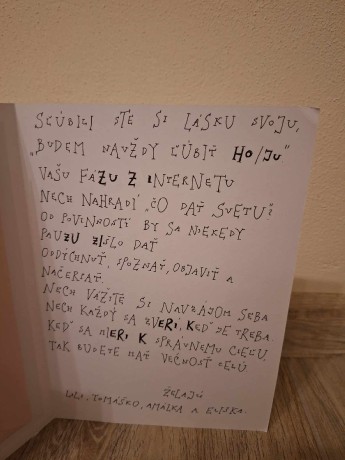 SĽÚBILI STE SI LÁSKU SVOJU,
„BUDEM NAVŽDY ĽÚBIŤ HO/JU“
VAŠU FÁZU Z INTERNETU
NECH NAHRADÍ „ČO DAŤ SVETU“!
OD POVINNOSTÍ BY SA NIEKEDY
PAUZU ZIŠLO DAŤ
ODDÝCHNUŤ, SPOZNAŤ, OBJAVIŤ A
NAČERPAŤ.
NECH VÁŽITE SI NAVZÁJOM SEBA
NECH KAŽDÝ SA ZVERÍ, KEĎ JE TREBA.
KEĎ SA MIERI K SPRÁVNEMU CIEĽU
TAK BUDETE MAŤ VEČNOSŤ CELÚ
ŽELAJÚ
TOMÁŠKO, AMÁLKA A ELIŠKA.